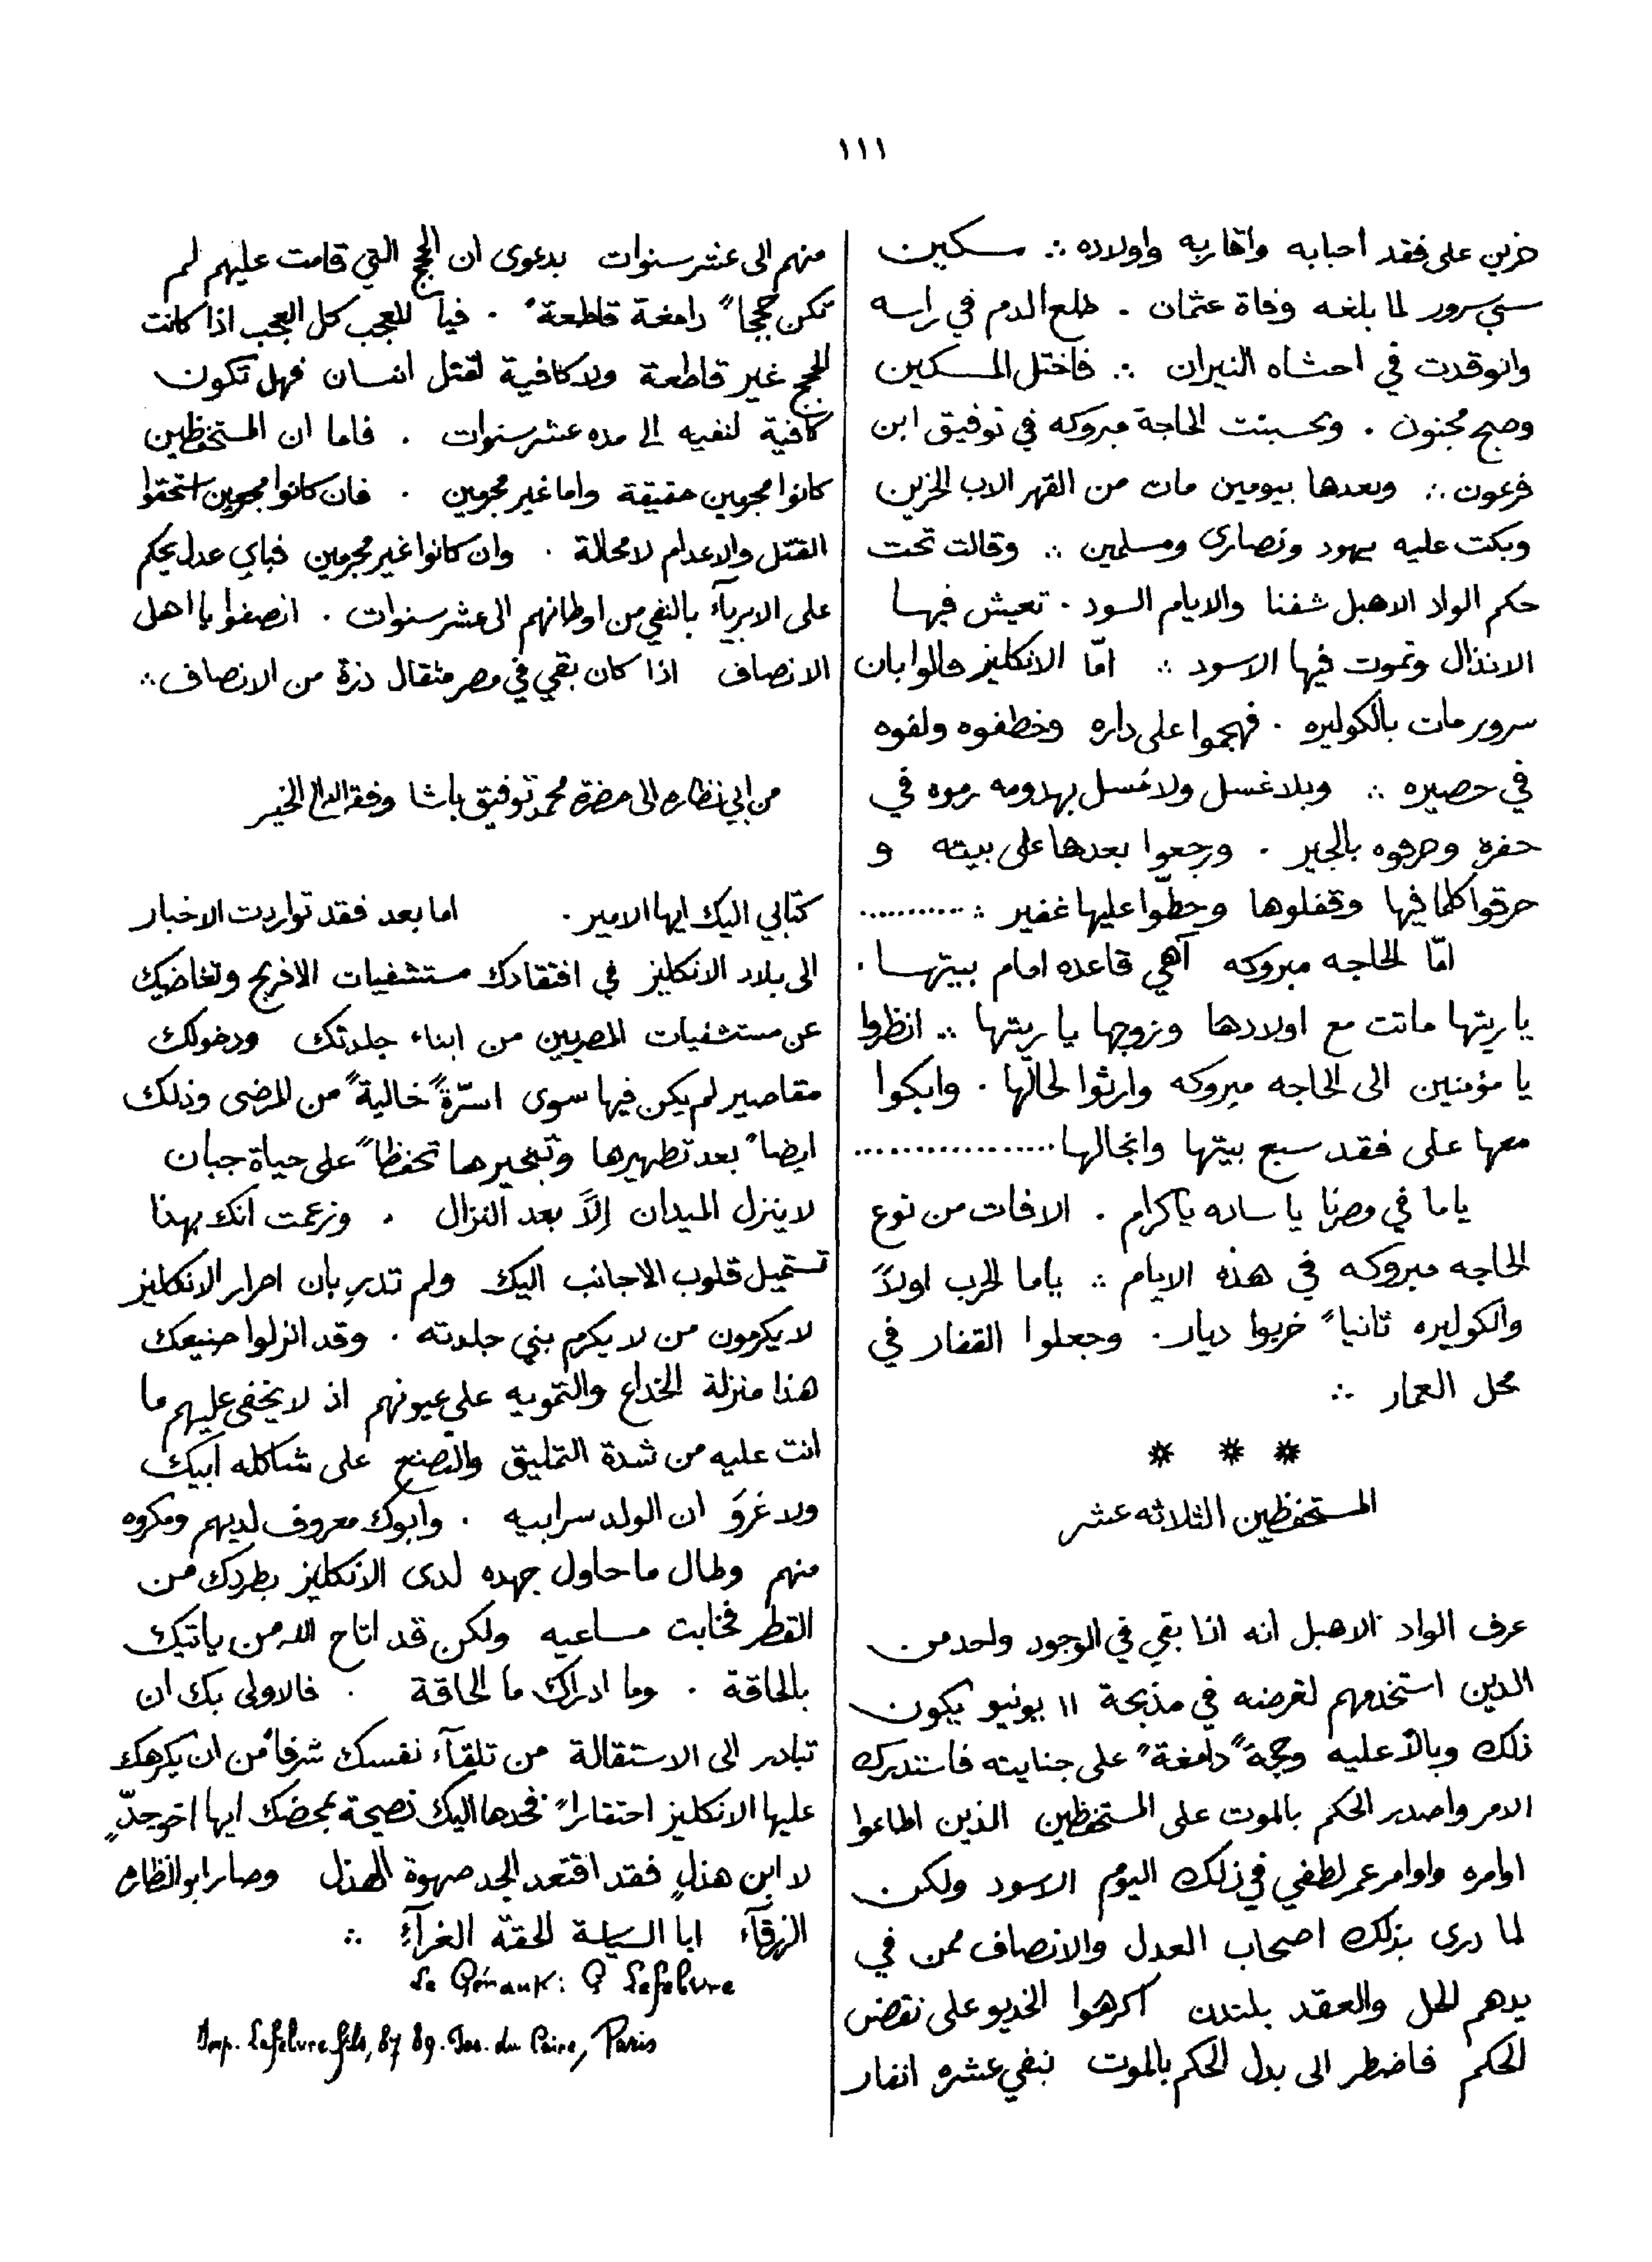 ١١١
حزين على فقد احبابه واقاربه واولاده ∴ مسكين
سي سرور لما بلغه وفاة عثمان . طلع الدم في راسه
وانوقدت في احشاه النيران ∴ فاختل المسكين
وصبح مجنون . وتحسبنت الحاجة مبروكه في توفيق ابن
فرعون ∴ وبعدها بيومين مات من القهر الاب الحزين
وبكت عليه يهود ونصارى ومسلمين ∴ وقالت تحت
حكم الواد الاهبل شفنا والايام السود . تعيش فيها
الانذال وتموت فيها الاسود ∴ امّا الانكليز قالوا بان
سرور مات بالكوليره . فهجموا على داره وخطفوه ولفوه
في حصيره ∴ وبلا غسل ولا غسل بهدومه رموه في
حفره وحرقوه بالجير . ورجعوا بعدها على بيته و
حرقوا كلما فيها وقفلوها وحطّوا عليها غفير ∴ ..........
امّا الحاجه مبروكه آهي قاعده امام بيتها .
يا ريتها ماتت مع اولادها وزوجها يا ريتها ∴ انظروا
يا مؤمنين الى الحاجه مبروكه وارثوا لحالها . وابكوا
معها على فقد سبع بيتها وانجالها ................
ياما في مصرنا يا ساده يا كرام . الافات من نوع
الحاجه مبروكه في هذه الايام ∴ ياما الحرب اولاً
والكوليره ثانياً خربوا ديار . وجعلوا القفار في
محل العمار ∴
* * *
المستحفظين الثلاثه عشر
عرف الواد الاهبل انه اذا بقي في الوجود واحد من
الذين استخدمهم لغرضه في مذبحة ١١ يونيو يكون
ذلك وبالاً عليه وحجةً دامغةً على جنايته فاستدرك
الامر واصدر الحكم بالموت على المستحفظين الذين اطاعوا
اوامره واوامر عمر لطفي في ذلك اليوم الاسود ولكن
لما درى بذلك اصحاب العدل والانصاف ممن في
يدهم الحل والعقد بلندن اكرهوا الخديو على نقض
الحكم فاضطر الى بدل الحكم بالموت بنفي عشره انفار
منهم الى عشر سنوات بدعوى ان الحجج التي قامت عليهم لم
تكن حججاً دامغة قاطعة . فيا للعجب كل العجب اذا كانت
الحجج غير قاطعة ولا كافية لقتل انسان فهل تكون
كافية لنفيه الى مده عشر سنوات . فاما ان المستحفظين
كانوا مجرمين حقيقة واما غير مجرمين . فان كانوا مجرمين استحقوا
القتل والاعدام لا محالة . وان كانوا غير مجرمين فباي عدل يحكم
على الابرياء بالنفي من اوطانهم الى عشر سنوات . انصفوا يا اهل
الانصاف اذا كان بقي في مصر مثقال ذرة من الانصاف ∴
من ابي نظاره الى حضرة محمد توفيق باشا وفقه الله الى الخير
كتابي اليك ايها الامير . اما بعد فقد تواردت الاخبار
الى بلاد الانكليز في افتقادك مستشفيات الافرنج وتغاضيك
عن مستشفيات المصريين من ابناء جلدتك ودخولك
مقاصير لم يكن فيها سوى اسرّةً خاليةً من المرضى وذلك
ايضاً بعد تطهيرها وتبخيرها تحفظاً على حياة جبان
لا ينزل الميدان إلاّ بعد النزال . وزعمت انك بهذا
تستميل قلوب الاجانب اليك ولم تدرِ بان احرار الانكليز
لا يكرمون من لا يكرم بني جلدته . وقد انزلوا صنيعك
هذا منزلة الخداع والتمويه على عيونهم اذ لا يخفى عليهم ما
انت عليه من شدة التمليق والتصنع على شاكله ابيك
ولا غروَ ان الولد سر ابيه . وابوك معروف لديهم ومكروه
منهم وطال ما حاول جهده لدى الانكليز بطردك من
القطر فخابت مساعيه ولكن قد اتاح الله من ياتيك
بالحاقة . وما ادراك ما الحاقة . فالاولى بك ان
تبادر الى الاستقالة من تلقاء نفسك شرفاً من ان يكرهك
عليها الانكليز احتقاراً فخدها اليك نصيحة يمحضك ايها اخو جدٍّ
لا ابن هذلٍ فقد اقتعد الجد صهوة الهذل وصار ابو النظاره
الزرقآء ابا السياسة الحقّة الغرآءِ ∴
Le Gérant: G Lefebvre
Imp. Lefebvre fils, 87 89. Pas. du Caire, Paris